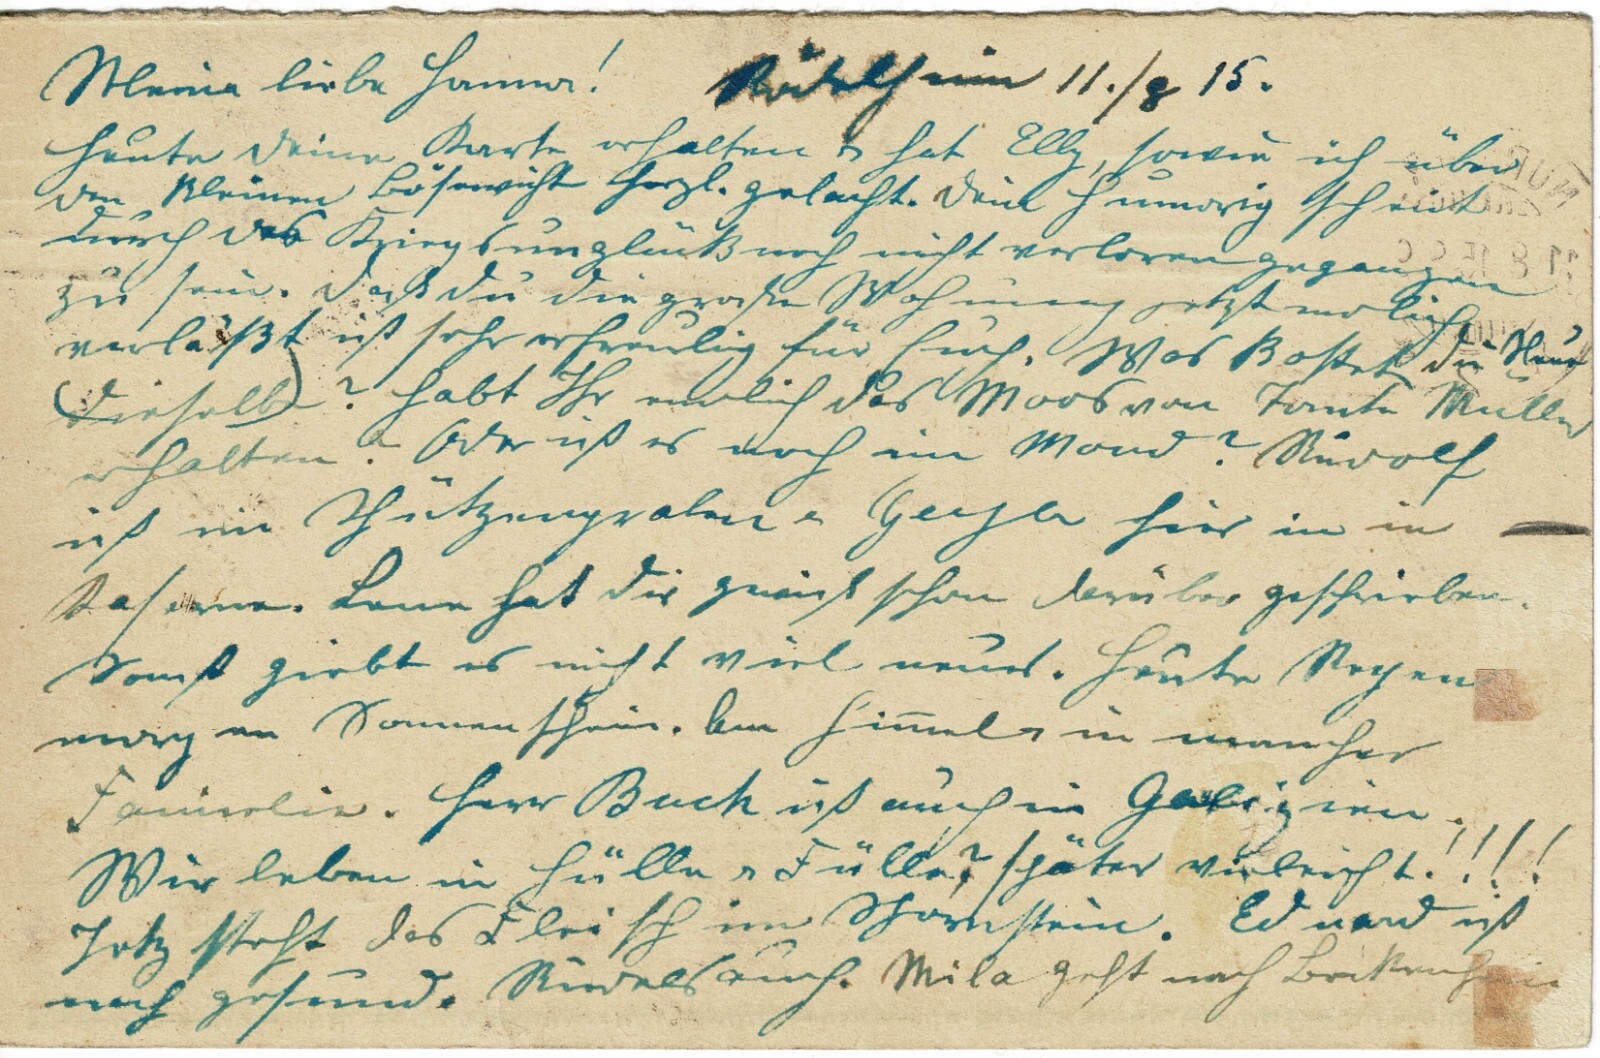 Meine liebe Hanna! Rödelheim 11./8 15.
Heute deine Karte erhalten & hat Elly, sowie ich über
den kleinen Bösewicht herzl. gelacht. Dein Humorig scheint
durch das Kriegsunglük noch nicht verloren gegangen
zu sein. Daß du die große Wohnung jetzt endlich
verläßt ist sehr erfreulig für Euch. Was kostet die Neue
(dieselbe)? Habt Ihr endlich das Moos von Tante Müller
erhalten? Oder ist es noch im Mond? Rudolf
ist im Schützengraben & hier in in
Kaserne. Lene hat dir gewiß schon darüber geschrieben.
Sonst giebt es nicht viel neues. Heute Regen
morgen Sonnenschein. Am Himmel & in mancher
Familie. Herr Buck ist auch in Galizien.
Wir leben in Hülle & Fülle? später vieleicht!!!!
Jetz steht das Fleisch im Schornstein. Eduard ist
noch gesund. Rudolf auch. Mila geht nach Bockenheim